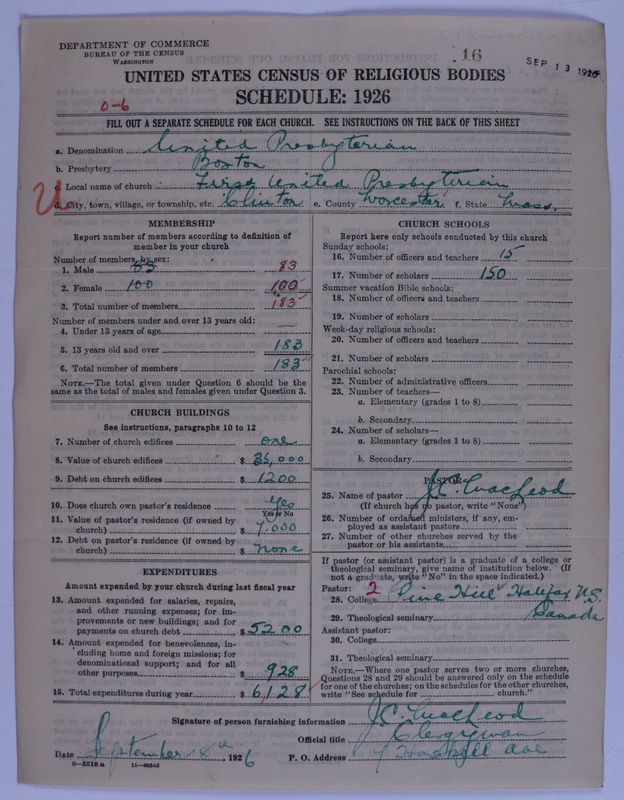 DEPARTMENT OF COMMERCE
BUREAU OF THE CENSUS
WASHINGTON
16
SEP 13 1926
UNITED STATES CENSUS OF RELIGIOUS BODIES
SCHEDULE: 1926
0-6
FILL OUT A SEPARATE SCHEDULE FOR EACH CHURCH. SEE INSTRUCTIONS ON THE BACK OF THIS SHEET
a. Denomination United Presbyterian
b. Presbytery Boston
c. Local name of church First United Presbyterian
d. City, town, village, or township, etc. Clinton e. County Worcester f. State Mass.
MEMBERSHIP
Report number of members according to definition of member in your church
Number of members, by sex:
1. Male 83 83
2. Female 100 100
3. Total number of members 183
Number of members under and over 13 years old:
4. Under 13 years of age —
5. 13 years old and over 183
6. Total number of members 183
NOTE.—The total given under Question 6 should be the same as the total of males and females given under Question 3.
CHURCH BUILDINGS
See instructions, paragraphs 10 to 12
7. Number of church edifices one
8. Value of church edifices $ 35,000
9. Debt on church edifices $ 1200
10. Does church own pastor's residence Yes
Yes or No
11. Value of pastor's residence (if owned by church) $ 7,000
12. Debt on pastor's residence (if owned by church) $ none
EXPENDITURES
Amount expended by your church during last fiscal year
13. Amount expended for salaries, repairs, and other running expenses; for improvements or new buildings; and for payments on church debt $ 5200
14. Amount expended for benevolences, including home and foreign missions; for denominational support; and for all other purposes $ 928
15. Total expenditures during year $ 6,128
CHURCH SCHOOLS
Report here only schools conducted by this church
Sunday schools:
16. Number of officers and teachers 15
17. Number of scholars 150
Summer vacation Bible schools:
18. Number of officers and teachers
19. Number of scholars
Week-day religious schools:
20. Number of officers and teachers
21. Number of scholars
Parochial schools:
22. Number of administrative officers
23. Number of teachers—
a. Elementary (grades 1 to 8)
b. Secondary
24. Number of scholars—
a. Elementary (grades 1 to 8)
b. Secondary
PASTOR
25. Name of pastor J.C. MacLeod
(If church has no pastor, write "None")
26. Number of ordained ministers, if any, employed as assistant pastors
27. Number of other churches served by the pastor or his assistants
If pastor (or assistant pastor) is a graduate of a college or theological seminary, give name of institution below. (If not a graduate, write "No" in the space indicated.)
Pastor: 2
28. College Pine Hill Halifax N.S.
Canada
29. Theological seminary
Assistant pastor:
30. College
31. Theological seminary
NOTE.—Where one pastor serves two or more churches, Questions 28 and 29 should be answered only on the schedule for one of the churches; on the schedules for the other churches, write "See schedule for church."
Signature of person furnishing information J.C. MacLeod
Official title Clergyman
Date September 8th, 1926 P. O. Address Haskell Ave
8—5518 a 11—9084d